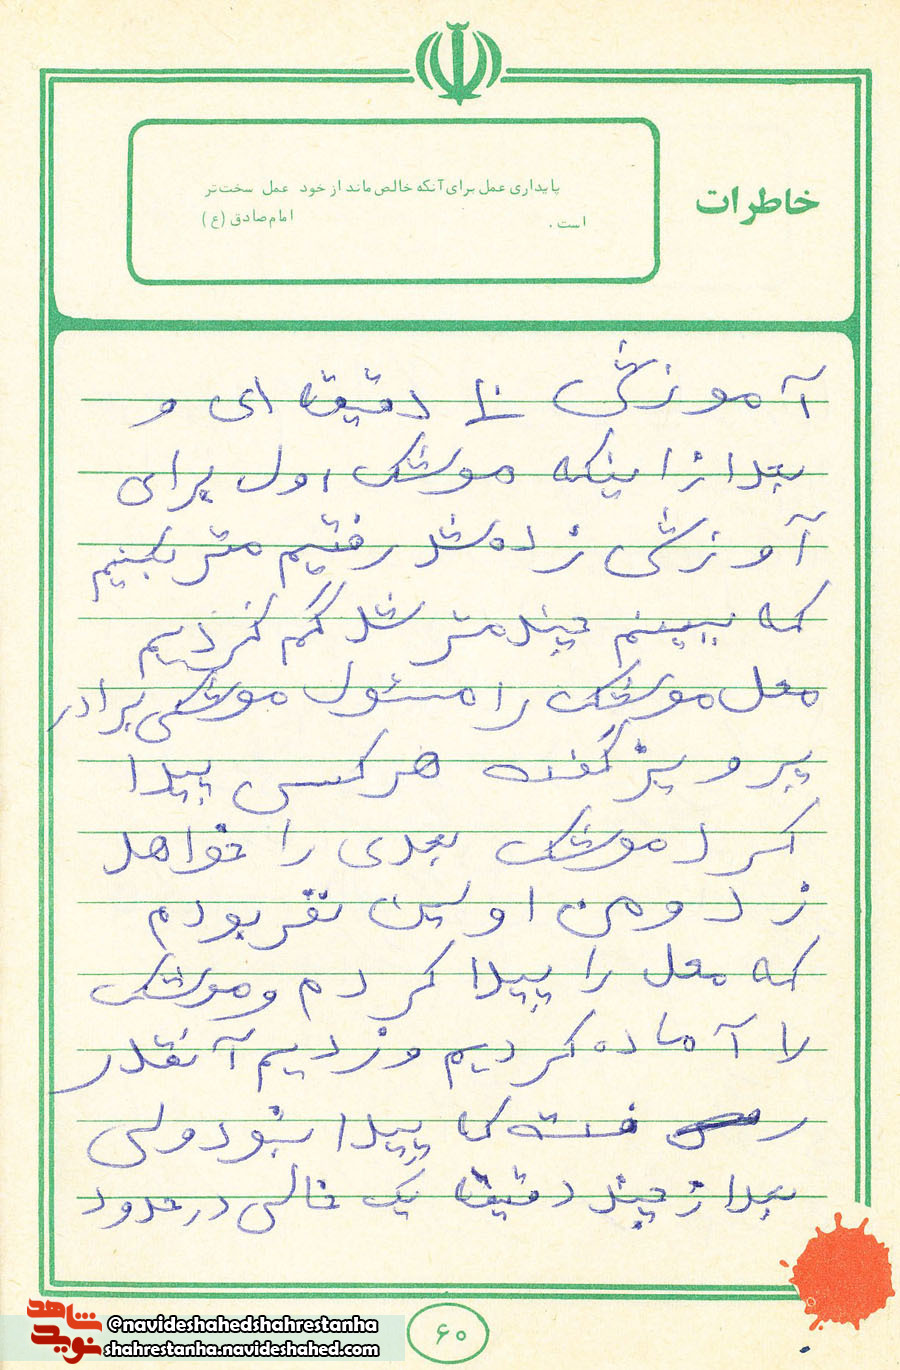 خاطرات
پایداری عمل برای آنکه خالص ماند از خود عمل سخت‌تر
است. امام صادق (ع)
آموزشی ۱۰ دقیقه ای و
بعد از اینکه موشک اول برای
آموزشی زده شد رفتیم متر بکنیم
که ببینم چند متر شد گم کردیم
محل موشک را مسئول موشکی برادر
پرویز گفته هر کسی پیدا
کرد موشک بعدی را خواهد
زد و من اولین نفر بودم
که محل را پیدا کردم و موشک
را آماده کردیم و زدیم آنقدر
رفته که پیدا نبود ولی
بعد از چند دقیقه یک خالی در حدود
۶۰
شاهد
نوید
@navideshahedshahrestanha
shahrestanha.navideshahed.com